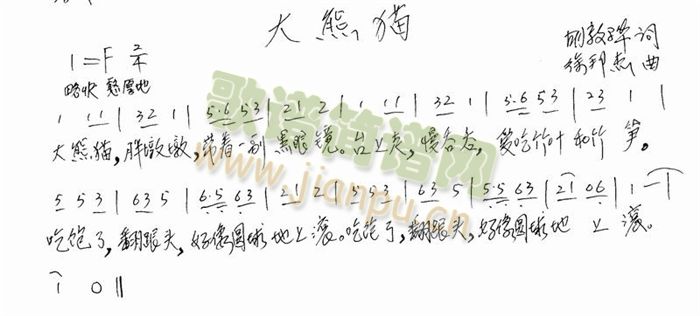 大熊猫
1=F 2/4 胡敦骅 词
稍快 憨厚地 徐邦杰 曲
1 11 | 32 1 | 5·6 53 | 21 2 | 1 11 | 32 1 | 5·6 53 | 23 1 1 |
大熊猫,胖墩墩,带着一副黑眼镜。 走,慢吞走,爱吃竹叶和竹笋。
5 53 | 63 5 | 6·5 63 | 21 2 | 5 53 | 63 5 | 5·5 63 | 21 06 | 1 — |
吃饱了,翻跟头,好像圆球地上滚。吃饱了,翻跟头,好像圆球地上滚。
1 0 ||
歌谱简谱网
www.jianpu.cn